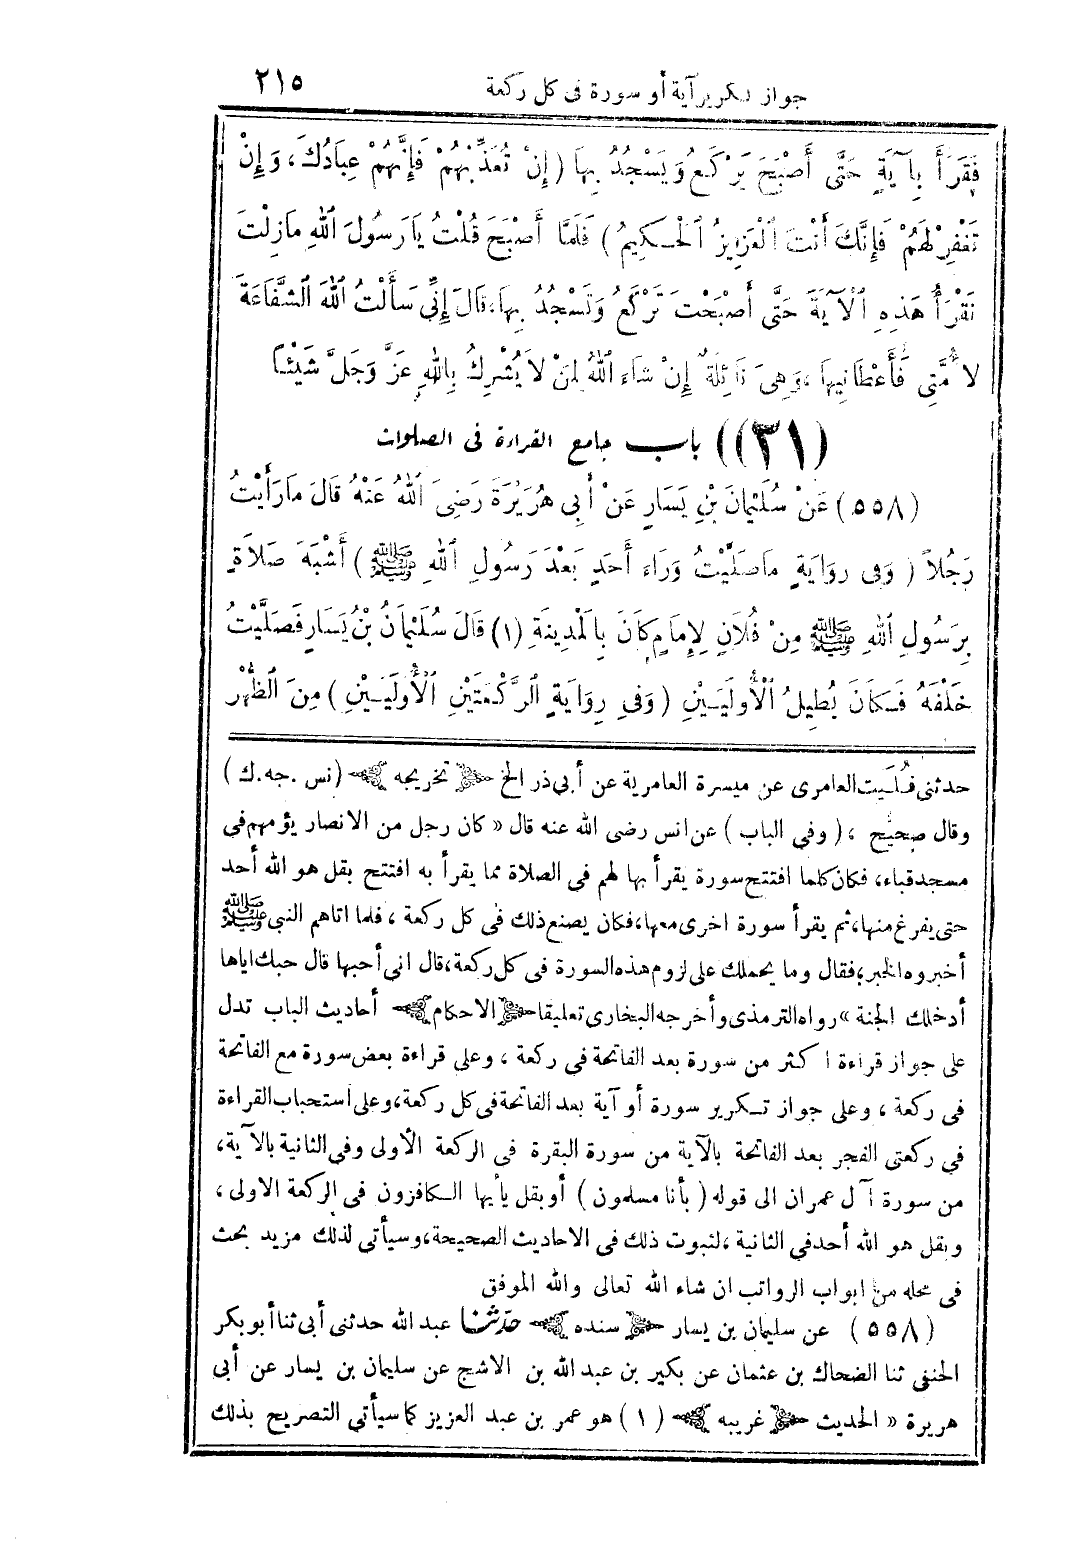 جواز تكرير آية أو سورة فى كل ركعة ٢١٥
فَقَرَأَ بِآيَةٍ حَتَّى أَصْبَحَ يَرْكَعُ وَيَسْجُدُ بِهَا (إِنْ تُعَذِّبْهُمْ فَإِنَّهُمْ عِبَادُكَ، وَإِنْ
تَغْفِرْ لَهُمْ فَإِنَّكَ أَنْتَ الْعَزِيزُ الْحَكِيمُ) فَلَمَّا أَصْبَحَ قُلْتُ يَارَسُولَ اللهِ مَازِلْتَ
تَقْرَأُ هَذِهِ الْآيَةَ حَتَّى أَصْبَحْتَ تَرْكَعُ وَتَسْجُدُ بِهَا، قَالَ إِنِّى سَأَلْتُ اللهَ الشَّفَاعَةَ
لِأُمَّتِى فَأَعْطَانِيهَا، وَهِىَ نَائِلَةٌ إِنْ شَاءَ اللهُ لِمَنْ لاَيُشْرِكُ بِاللهِ عَزَّ وَجَلَّ شَيْئًا
(٣١)) باب جامع القراءة فى الصلوات
(٥٥٨) عَنْ سُلَيْمَانَ بْنِ يَسَارٍ عَنْ أَبِى هُرَيْرَةَ رَضِىَ اللهُ عَنْهُ قَالَ مَارَأَيْتُ
رَجُلاً (وَفِى رِوَايَةٍ مَاصَلَّيْتُ وَرَاءَ أَحَدٍ بَعْدَ رَسُولِ اللهِ ﷺ) أَشْبَهَ صَلاَةً
بِرَسُولِ اللهِ ﷺ مِنْ فُلاَنٍ لِإِمَامٍ كَانَ بِالْمَدِينَةِ (١) قَالَ سُلَيْمَانُ بْنُ يَسَارٍ فَصَلَّيْتُ
خَلْفَهُ فَكَانَ يُطِيلُ الْأُولَيَيْنِ (وَفِى رِوَايَةٍ الرَّكْعَتَيْنِ الْأُولَيَيْنِ) مِنَ الظُّهْرِ
حدثنى فُلَيت العامرى عن ميسرة العامرية عن أبى ذر الخ ﴿تخريجه﴾ (نس . جه . ك)
وقال صحيح ، (وفى الباب) عن انس رضى الله عنه قال « كان رجل من الانصار يؤمهم فى
مسجد قباء، فكان كلما افتتح سورة يقرأ بها لهم فى الصلاة مما يقرأ به افتتح بقل هو الله أحد
حتى يفرغ منها، ثم يقرأ سورة اخرى معها، فكان يصنع ذلك فى كل ركعة ، فلما اتاهم النبى ﷺ
أخبروه الخبر، فقال وما يحملك على لزوم هذه السورة فى كل ركعة، قال انى أحبها قال حبك اياها
أدخلك الجنة » رواه الترمذى وأخرجه البخارى تعليقا ﴿الاحكام﴾ أحاديث الباب تدل
على جواز قراءة اكثر من سورة بعد الفاتحة فى ركعة ، وعلى قراءة بعض سورة مع الفاتحة
فى ركعة ، وعلى جواز تكرير سورة أو آية بعد الفاتحة فى كل ركعة، وعلى استحباب القراءة
فى ركعتى الفجر بعد الفاتحة بالآية من سورة البقرة فى الركعة الأولى وفى الثانية بالآية،
من سورة آل عمران الى قوله (بأنا مسلمون) أو بقل يأيها الكافرون فى الركعة الاولى ،
وبقل هو الله أحد فى الثانية ، لثبوت ذلك فى الاحاديث الصحيحة، وسيأتى لذلك مزيد بحث
فى محله من ابواب الرواتب ان شاء الله تعالى والله الموفق
(٥٥٨) عن سليمان بن يسار ﴿سنده﴾ حَدَّثَنَا عبد الله حدثنى أبى ثنا أبو بكر
الحنفى ثنا الضحاك بن عثمان عن بكير بن عبد الله بن الاشج عن سليمان بن يسار عن أبى
هريرة « الحديث ﴿غريبه﴾ (١) هو عمر بن عبد العزيز كما سيأتى التصريح بذلك